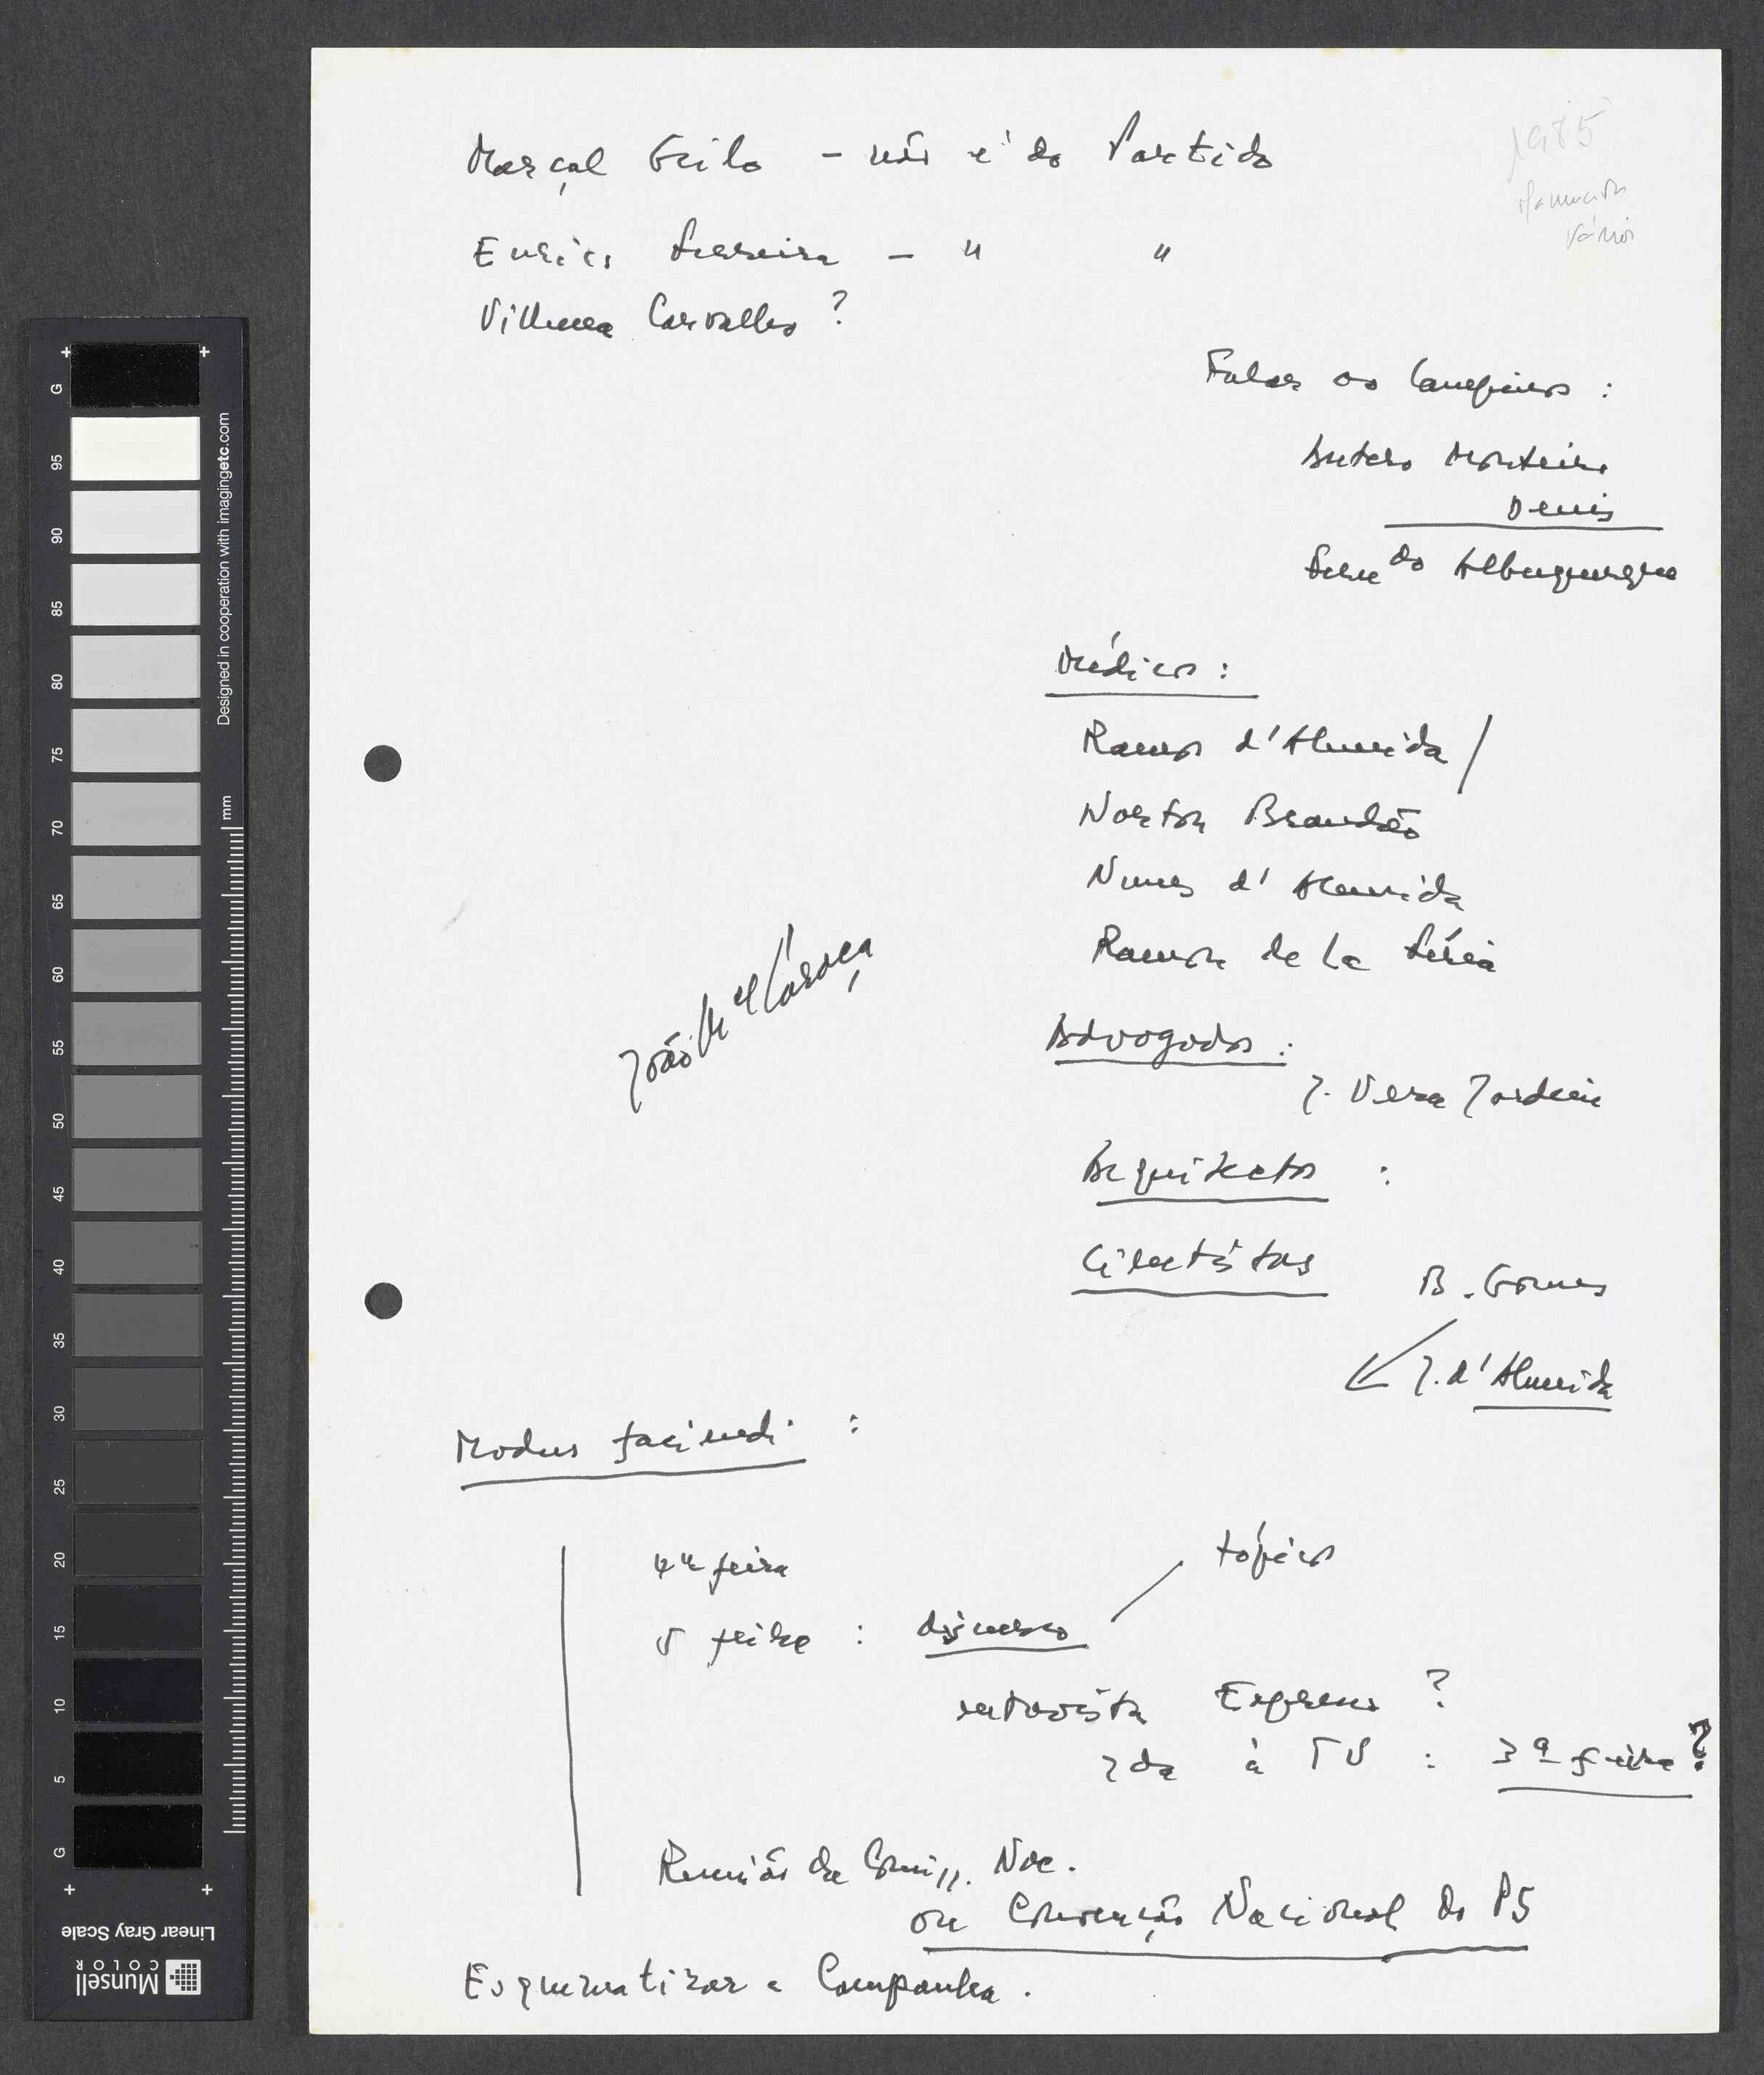 1985
Marçal Grilo - não é do Partido
Eurico Ferreira - " "
Villaça Carvalho ?
Falar ao Campinos :
Antero Monteiro
Denis
Fern do Albuquerque
Médicos :
Ramos d'Almeida /
Norton Brandão
Nunes d'Almeida
Ramon de La Féria
João M el Caraça
Advogados :
J. Vera Jardim
Arquitectos :
Cientistas B. Gomes
J. d'Almeida
Modus faciendi :
tópicos
4ª feira
5 feira : discurso
entrevista Expresso ?
Ida à TV : 3ª feira ?
Reunião da Comiss. Nac.
ou Convenção Nacional do PS
Esquematizar a Campanha .
G
95
90
85
80
75
70
65
60
55
50
45
40
35
30
25
20
15
10
5
G
Designed in cooperation with imagingetc.com
mm
Linear Gray Scale
Munsell
COLOR